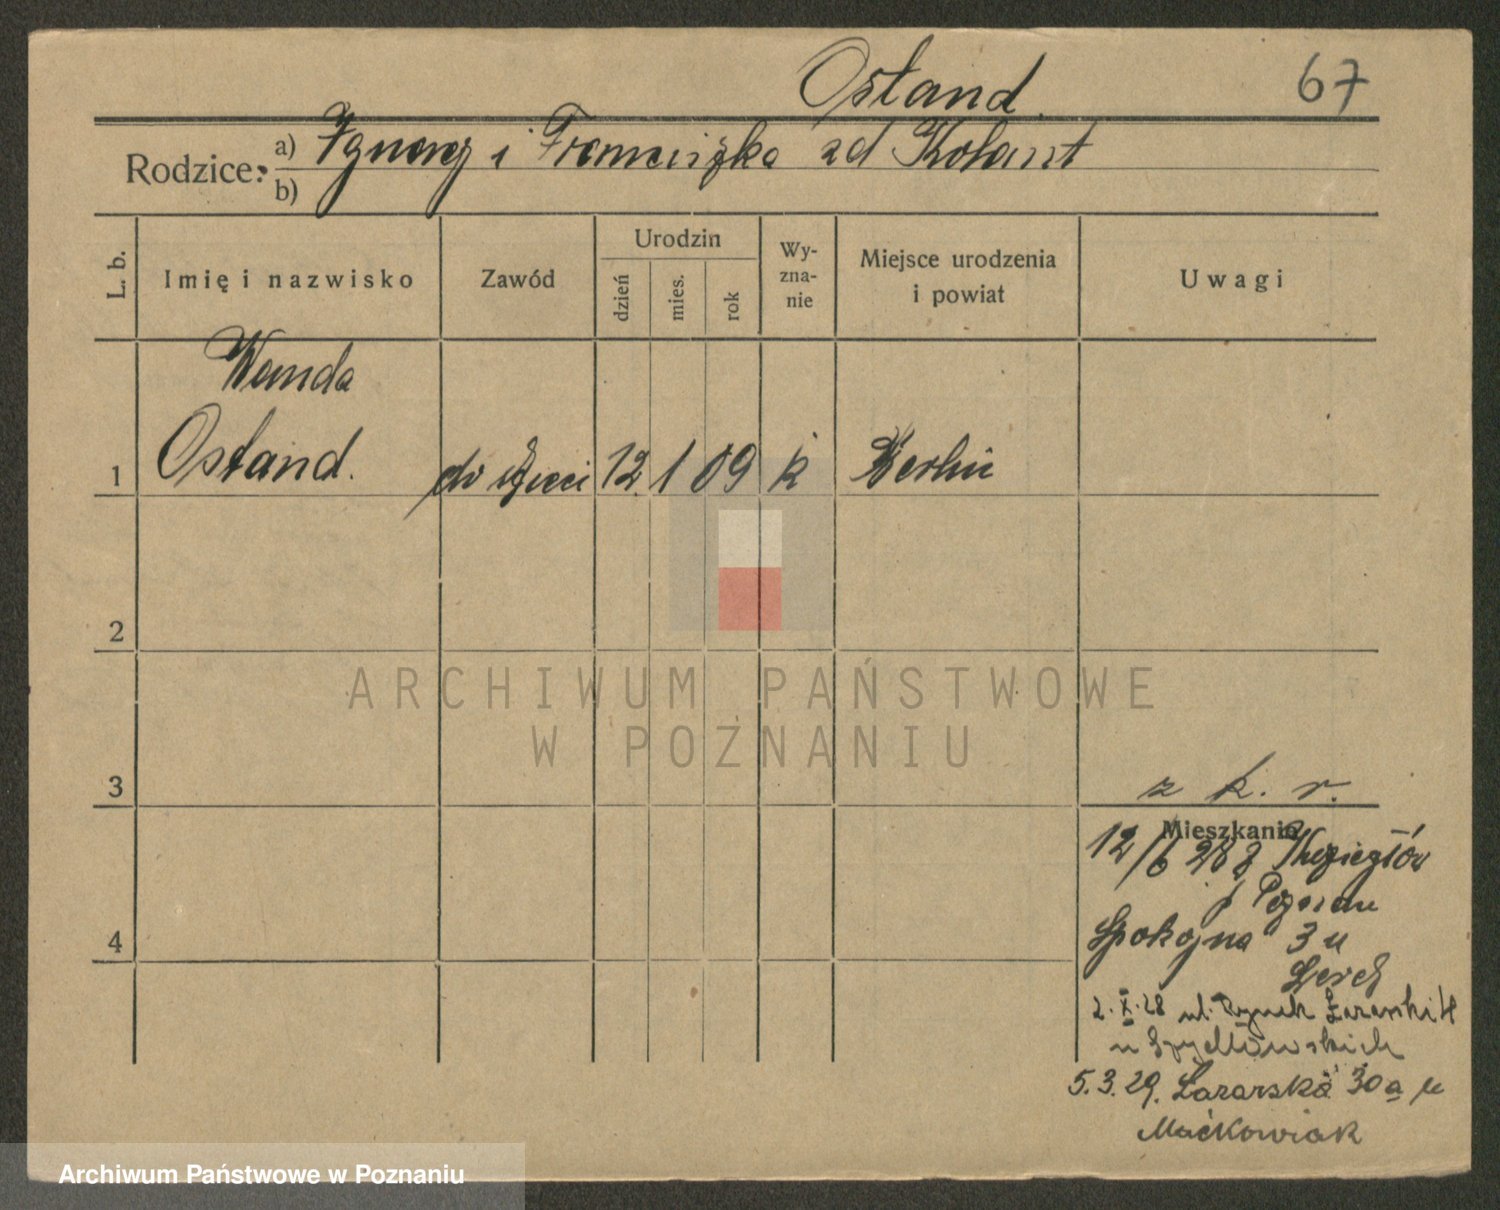 Ostand.
67
Rodzice:
a) Ignacy i Franciszka zd Kolant
b)
L. b.
Imię i nazwisko
Zawód
Urodzin
dzień
mies.
rok
Wy-
zna-
nie
Miejsce urodzenia
i powiat
Uwagi
Wanda
1 Ostand. do dzieci 12. 1 09 k Berlin
2
3
z k. r.
Mieszkanie
12/6 28
p Poznań
4
Spokojna 3 u
2.X.28 ul. Rynek Łazarski 14
u Szydłowskich
5.3.29. Łazarska 30a u
Maćkowiak
ARCHIWUM PAŃSTWOWE
W POZNANIU
Archiwum Państwowe w Poznaniu